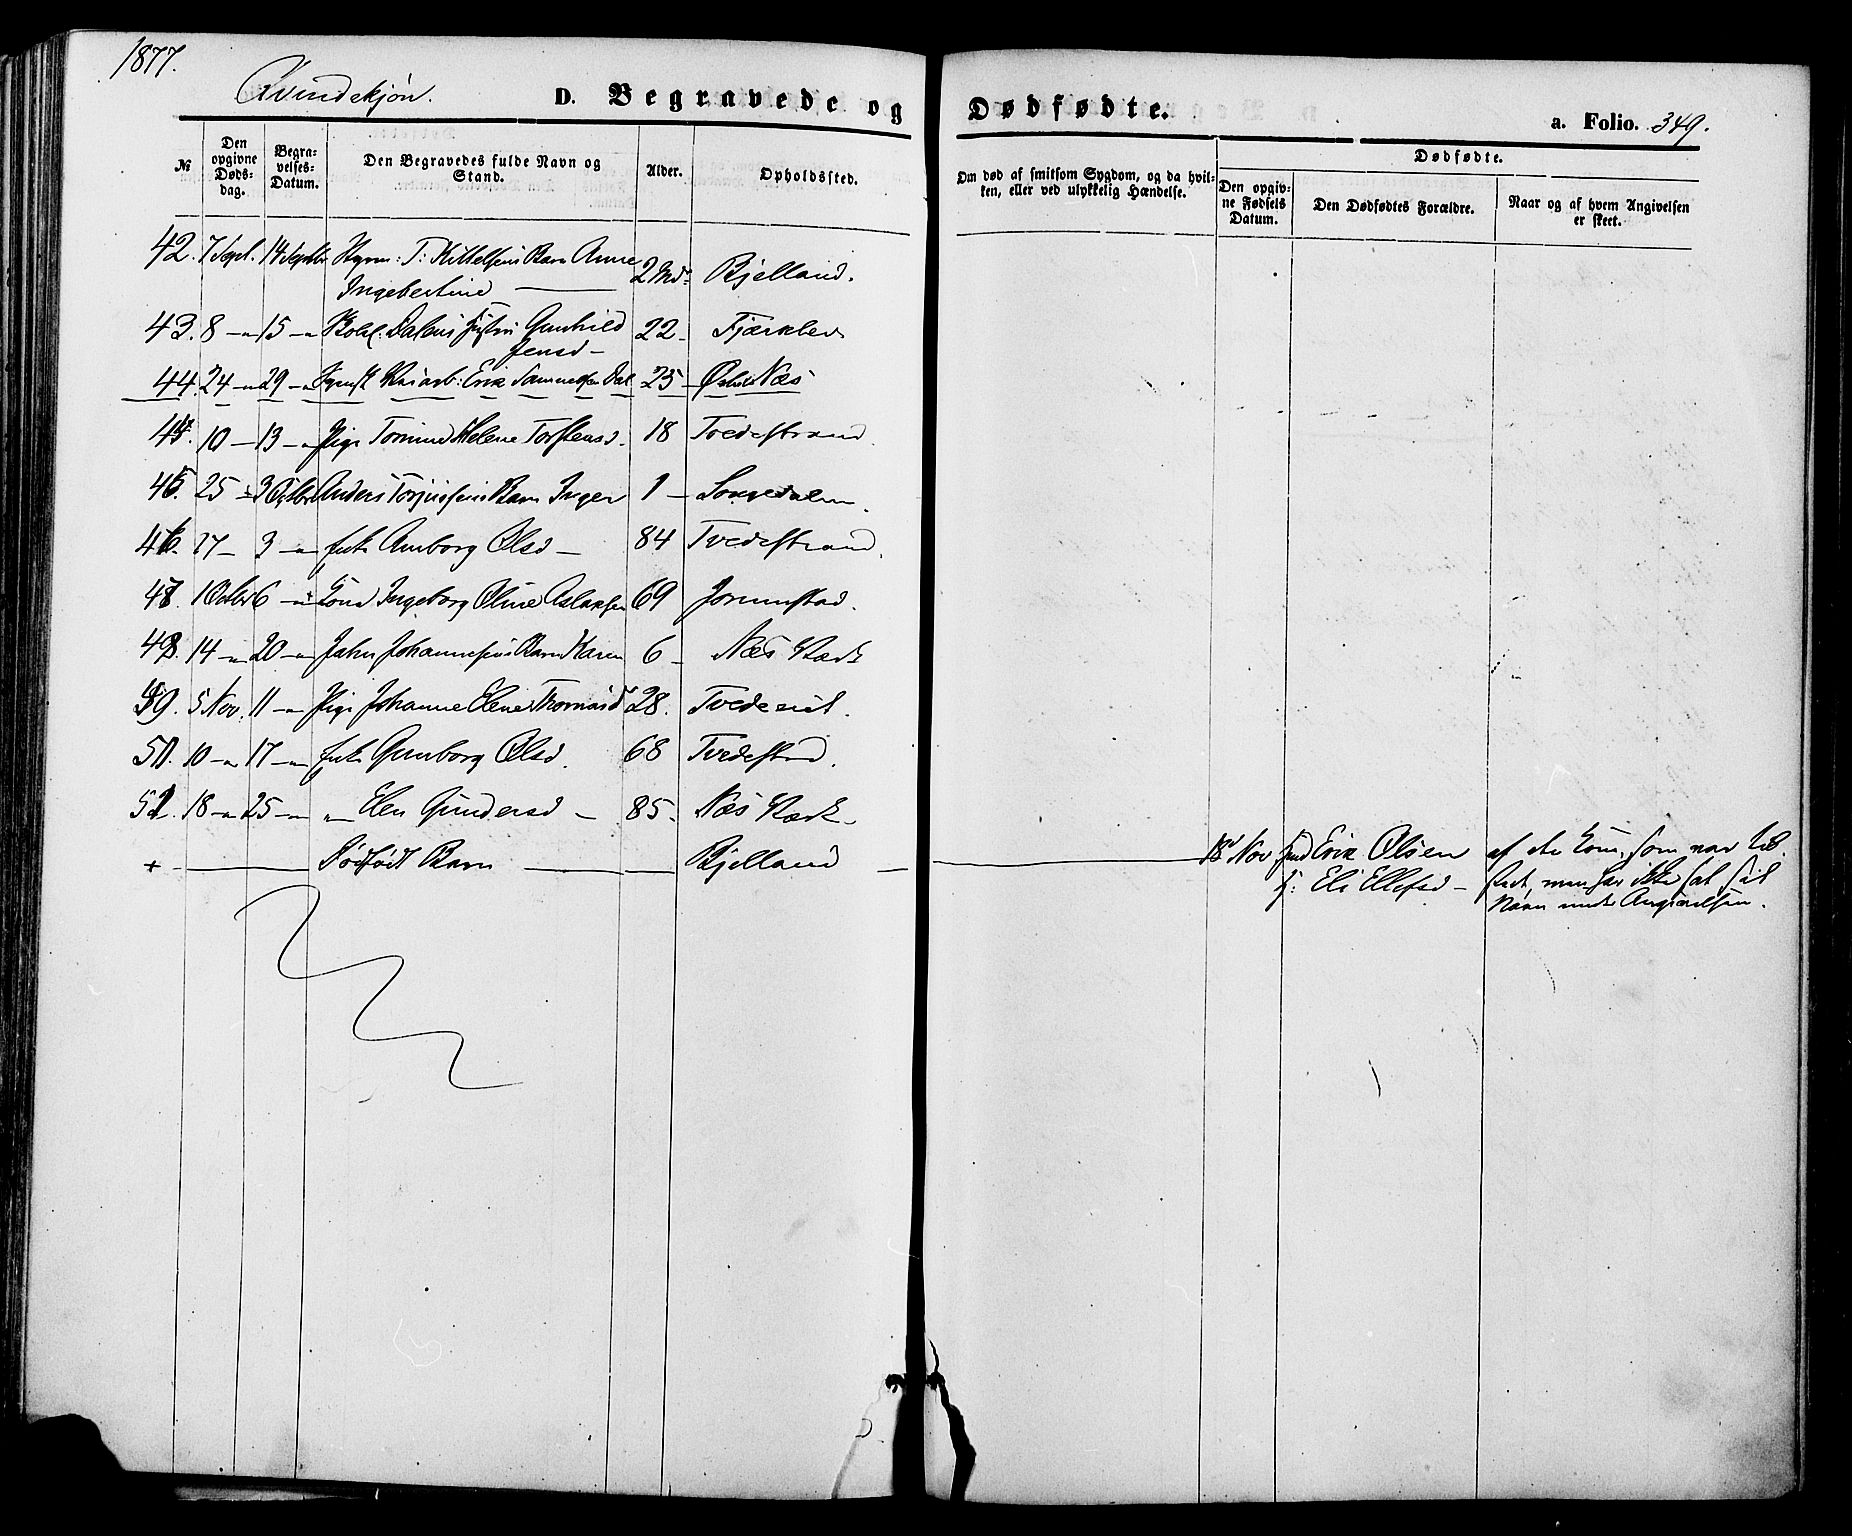 1877.
Qvindekjøn.
D. Begravede og Dødfødte.
a. Folio. 349.
№
Den opgivne Dødsdag.
Begravelses-Datum.
Den Begravedes fulde Navn og Stand.
Alder.
Opholdssted.
Om død af smitsom Sygdom, og da hvilken, eller ved ulykkelig Hændelse.
Dødfødte.
Den opgivne Fødsels Datum.
Den Dødfødtes Forældre.
Naar og af hvem Angivelsen er skeet.
42. 7 Sept. 14 Septbr T: Kittelsens Barn Anne 2 Md. Bjelland.
Ingebertine —
43. 8 — 15 — Dalens Hustru Gunhild 22 - Fjærkleb
Jensd —
44. 24 — 29 — Erik Samuelsen Dal 25 - Næs
10 — 13 — Pige Tomine Helene Torstensd. 18 Tvedestrand.
45. 25 — 3 Octbr Anders Torjussens Barn Inger 1 - Songedalen.
46. 27 — 3 — Enke Anborg Olsd — 84 Tvedestrand.
47. 1 Octbr 6 — Kone Ingeborg Oline Aslaksen 69 Jorunstad.
48. 14 — 20 — Jahn Johannesens Barn Karen 6 - Næs Værk
49. 5 Nov. 11 — Pige Johanne Elene Thomasd 28. Tvedeeiet.
50. 10 — 17 — Enke Gunborg Olsd. 68 Tvedestrd.
51. 18 — 25 — " Elen Gundersd — 85 - Næs Værk -
+ — Dødfødt Barn — Bjelland — 18 Nov Erik Olsen af som var til
H: Eli Ellefsd — Sted, men har ikke sat sit
Navn under Angivelsen.